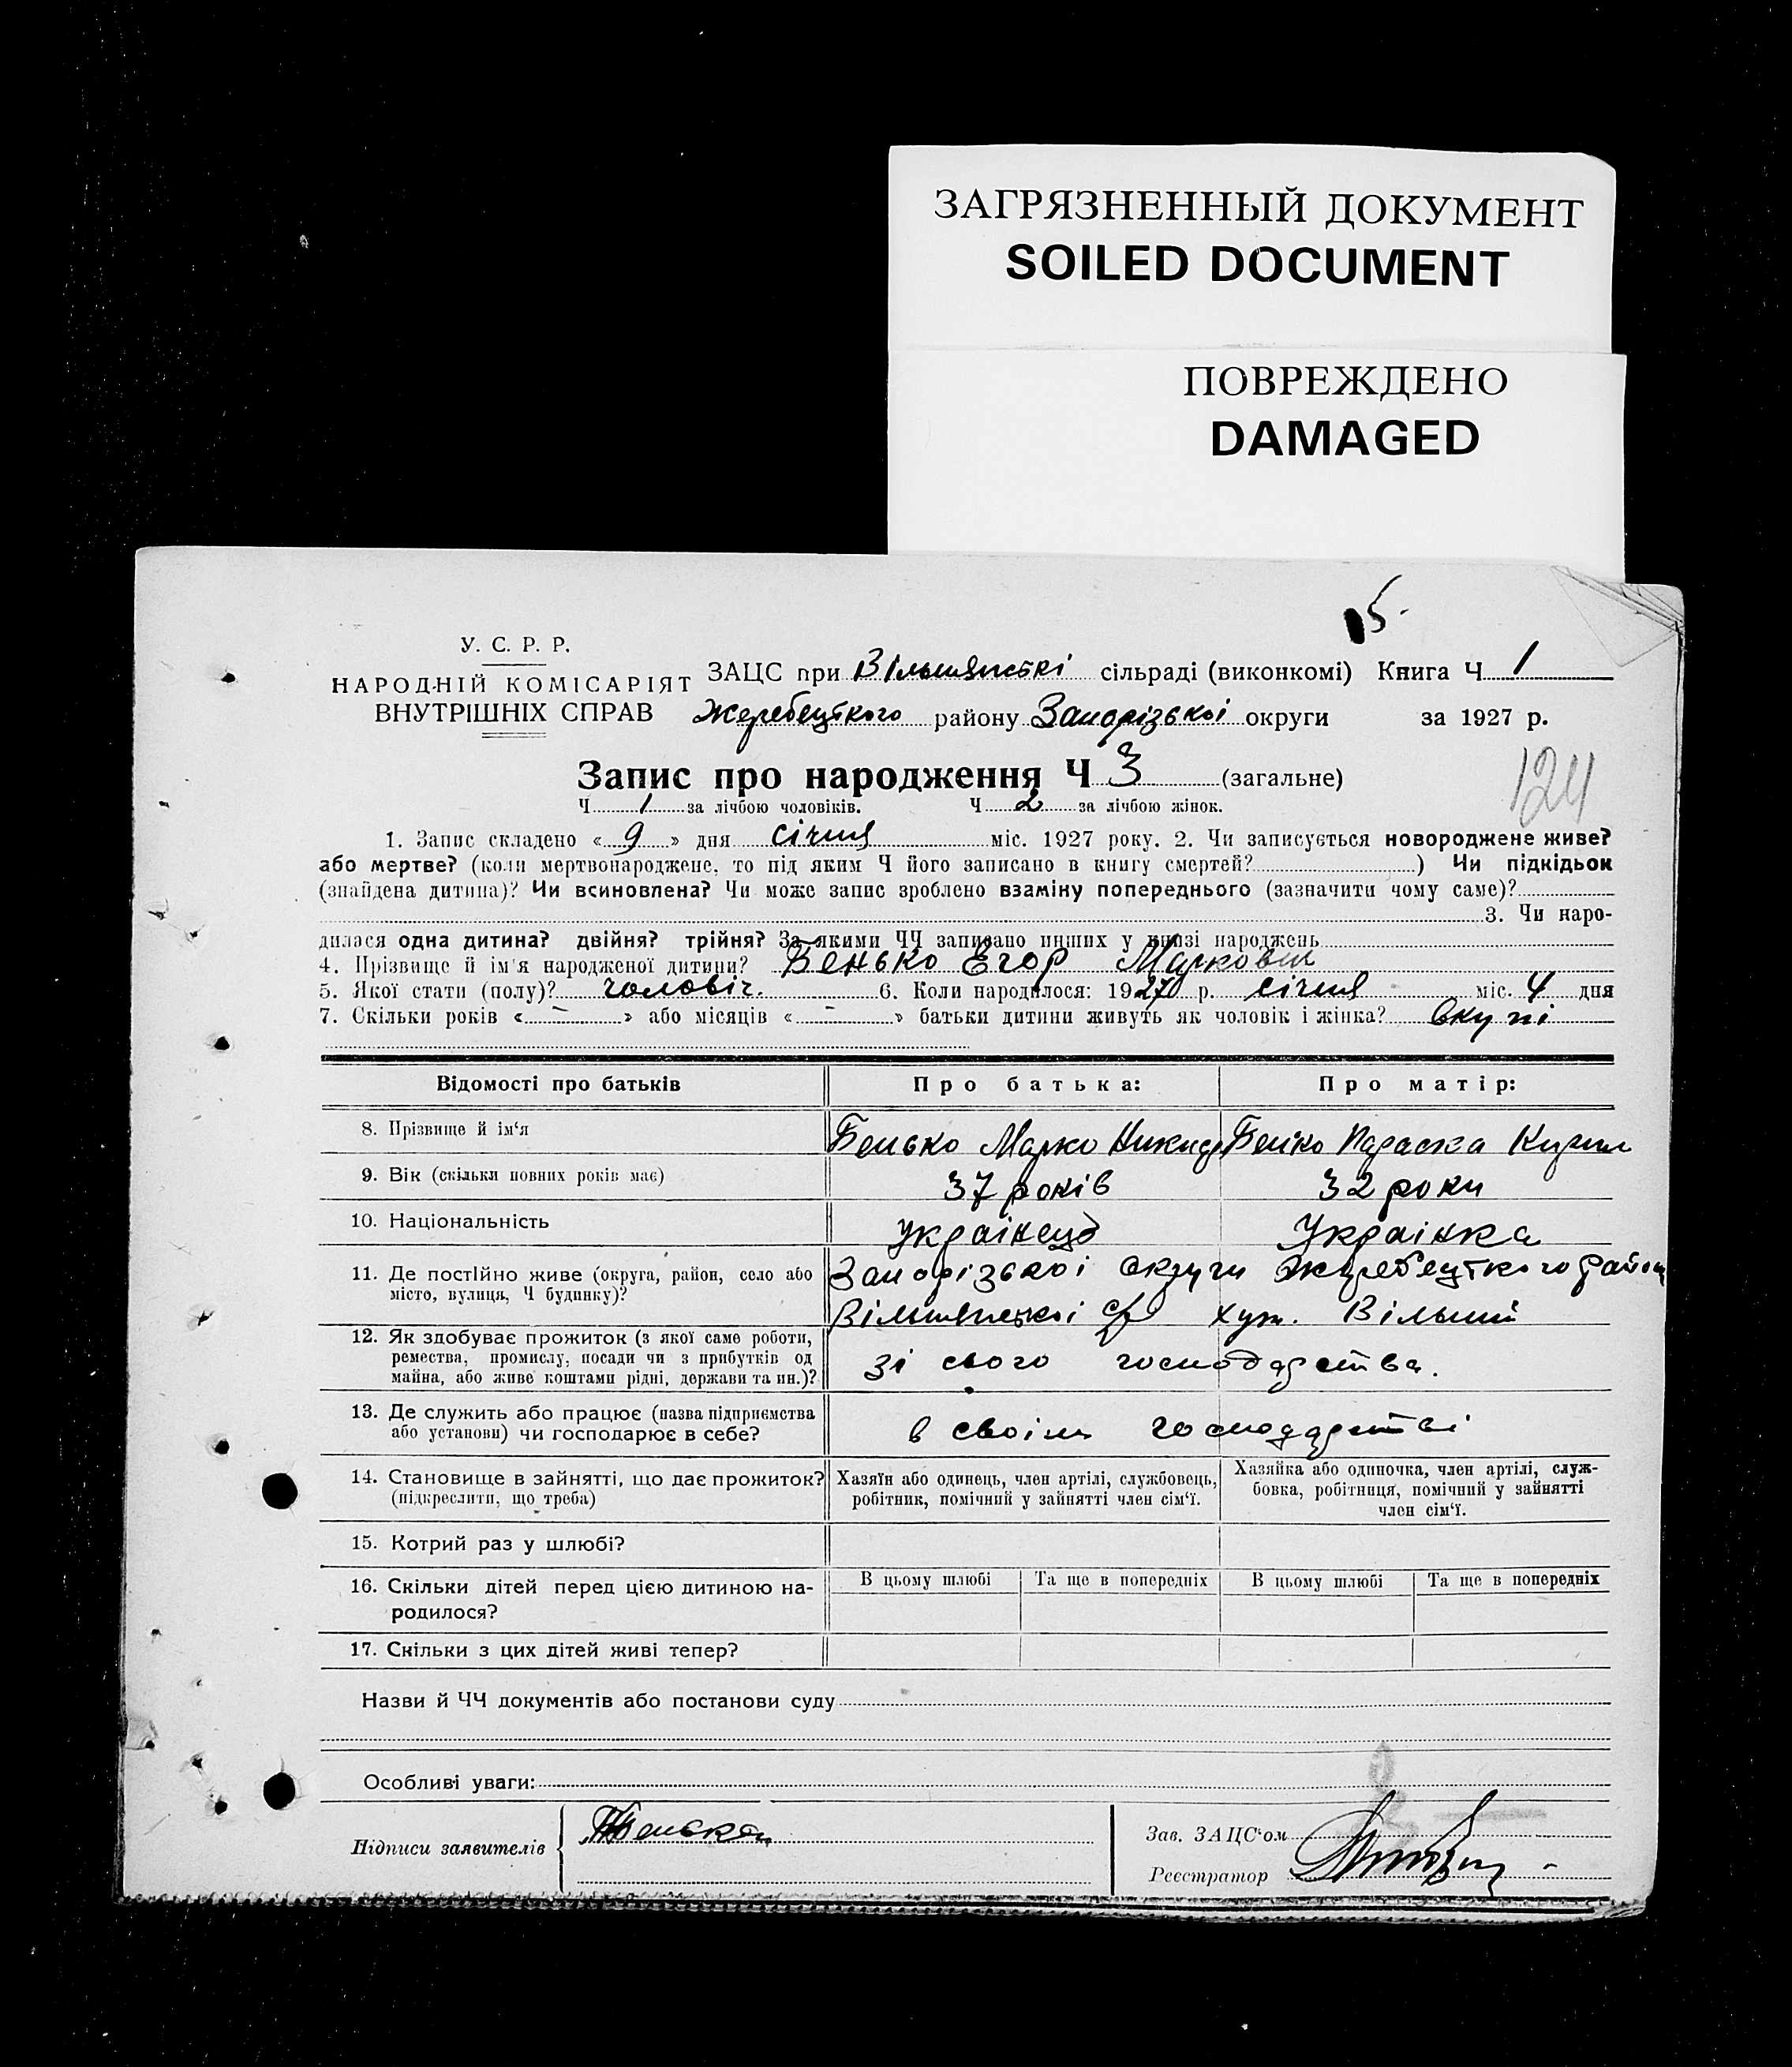 ЗАГРЯЗНЕННЫЙ ДОКУМЕНТ
SOILED DOCUMENT
ПОВРЕЖДЕНО
DAMAGED
5.
У. С. Р. Р.
НАРОДНІЙ КОМІСАРІЯТ
ВНУТРІШНІХ СПРАВ
ЗАЦС при Вільшянські сільраді (виконкомі) Книга Ч 1
Жеребецького району Запорізької округи за 1927 р.
Запис про народження Ч 3 (загальне)
124
Ч 1 за лічбою чоловіків. Ч 2 за лічбою жінок.
1. Запис складено « 9 » дня січня міс. 1927 року. 2. Чи записується новороджене живе?
або мертве? (коли мертвонароджене, то під яким Ч його записано в книгу смертей? ) Чи підкідьок
(знайдена дитина)? Чи всиновлена? Чи може запис зроблено взаміну попереднього (зазначити чому саме)?
3. Чи наро-
дилася одна дитина? двійня? трійня? За якими ЧЧ записано инших у книзі народжень
4. Прізвище й ім'я народженої дитини? Бенько Егор Маркович
5. Якої стати (полу)? чоловіч. 6. Коли народилося: 1927 р. січня міс. 4 дня
7. Скільки років « — » або місяців « — » батьки дитини живуть як чоловік і жінка? вкупі
Відомості про батьків Про батька: Про матір:
8. Прізвище й ім'я Бенько Марко Бенько Параска
9. Вік (скільки повних років має) 37 років 32 роки
10. Національність Українець Українка
11. Де постійно живе (округа, район, село або Запорізькоі округи Жеребецького району
місто, вулиця, Ч будинку)? Вільшянськоі с/р хут. Вільний
12. Як здобуває прожиток (з якої саме роботи,
ремества, промислу, посади чи з прибутків од зі свого господарства.
майна, або живе коштами рідні, держави та ин.)?
13. Де служить або працює (назва підприємства
або установи) чи господарює в себе? в своім господарстві
14. Становище в зайнятті, що дає прожиток?
(підкреслити, що треба)
Хазяїн або одинець, член артілі, службовець,
робітник, помічний у зайнятті член сім'ї.
Хазяйка або одиночка, член артілі, служ-
бовка, робітниця, помічний у зайнятті
член сім'ї.
15. Котрий раз у шлюбі?
16. Скільки дітей перед цією дитиною на-
родилося?
В цьому шлюбі Та ще в попередніх В цьому шлюбі Та ще в попередніх
17. Скільки з цих дітей живі тепер?
Назви й ЧЧ документів або постанови суду
Особливі уваги:
Підписи заявителів
Зав. ЗАЦС'ом
Реєстратор